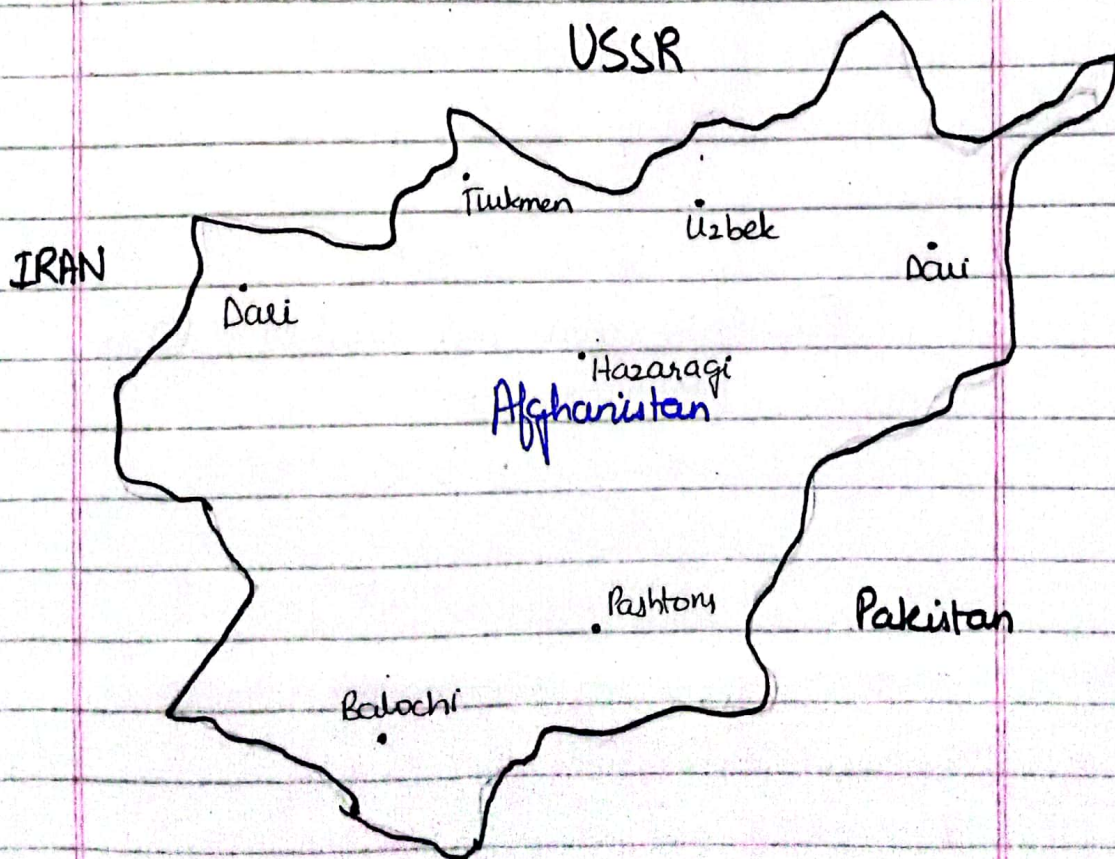 USSR
Turkmen
Uzbek
IRAN
Dari
Dari
Hazaragi
Afghanistan
Pashtons
Pakistan
Balochi